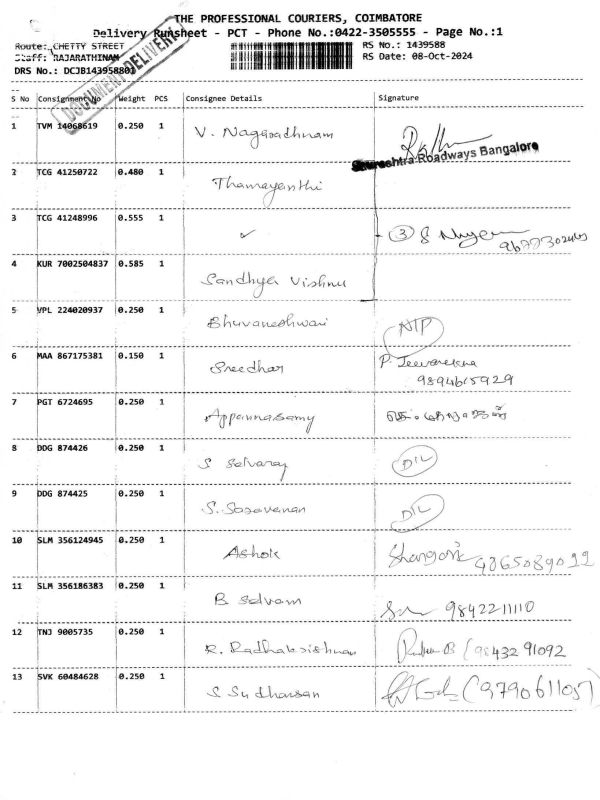 THE PROFESSIONAL COURIERS, COIMBATORE
Delivery Runsheet - PCT - Phone No.:0422-3505555 - Page No.:1
Route: CHETTY STREET RS No.: 1439588
Staff: RAJARATHINAM RS Date: 08-Oct-2024
DRS No.: DCJB143958801
DOCUMENT DELIVERY
S No Consignment No Weight PCS Consignee Details Signature
1 TVM 14068619 0.250 1 V. Nagaradhnam
Roadways Bangalore
2 TCG 41250722 0.480 1 Thamayenthi
3 TCG 41248996 0.555 1 ✓ ③
4 KUR 7002504837 0.585 1 Sandhya Vishnu
5 VPL 224020937 0.250 1 Bhuvaneshwari
6 MAA 867175381 0.150 1 Sreedhar P.
9894615929
7 PGT 6724695 0.250 1 Appannasamy
8 DDG 874426 0.250 1 S Selvaraj D/L
9 DDG 874425 0.250 1 S. Saravanan D/L
10 SLM 356124945 0.250 1 Ashok
11 SLM 356186383 0.250 1 B Selvam 9842211110
12 TNJ 9005735 0.250 1 R. Radhakrishnan (98432 91092
13 SVK 60484628 0.250 1 S Sudharsan (9790611057)